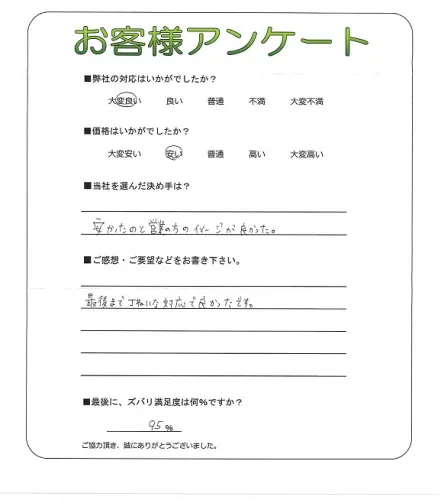 お客様アンケート
■弊社の対応はいかがでしたか?
大変良い 良い 普通 不満 大変不満
■価格はいかがでしたか?
大変安い 安い 普通 高い 大変高い
■当社を選んだ決め手は?
安かったのと営業の方のイメージが良かった。
■ご感想・ご要望などをお書き下さい。
最後まで丁ねいな対応で良かったです。
■最後に、ズバリ満足度は何%ですか?
95%
ご協力頂き、誠にありがとうございました。